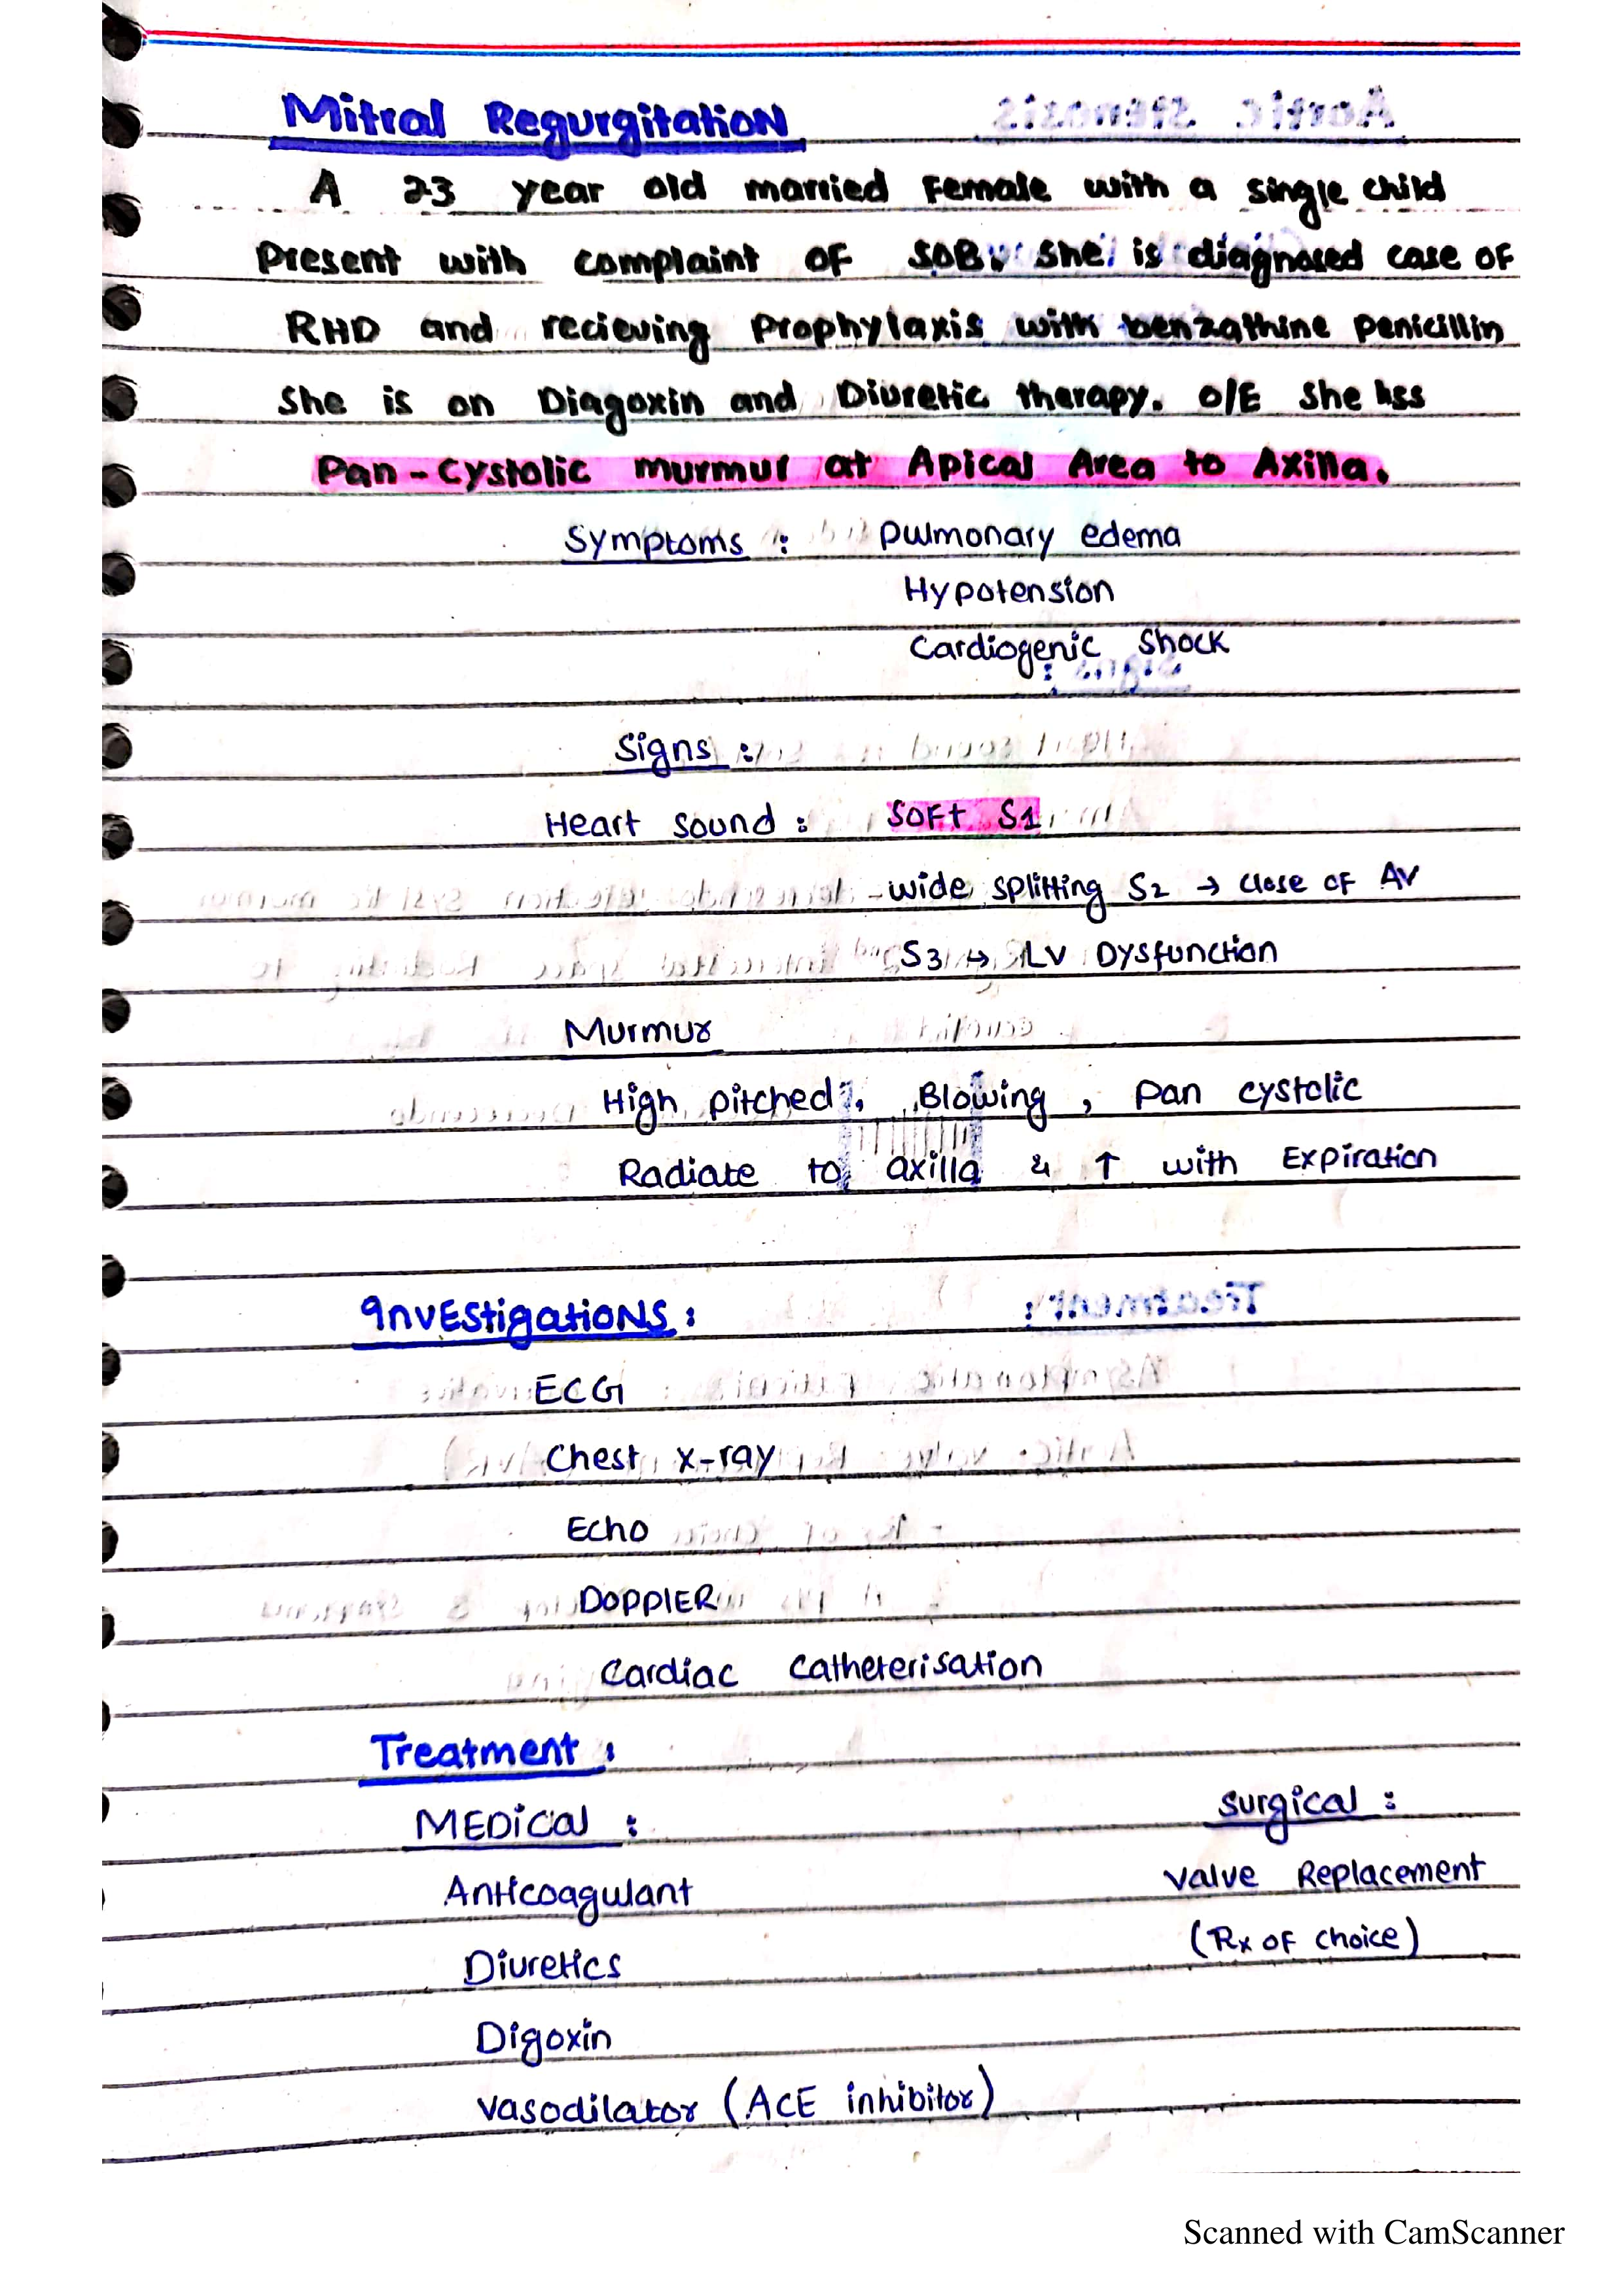 Mitral Regurgitation
A 23 year old married Female with a single child
Present with complaint OF SOB. She is diagnosed case OF
RHD and recieving Prophylaxis with benzathine penicillin
She is on Diagoxin and Diuretic therapy. O/E She hss
Pan-cystolic murmur at Apical Area to Axilla.
Symptoms : pulmonary edema
Hypotension
Cardiogenic Shock
Signs :
Heart Sound : SOFt S1
wide splitting S2 → Close OF AV
S3 → LV Dysfunction
Murmur
High pitched, Blowing, Pan cystolic
Radiate to axilla & ↑ with Expiration
Investigations :
ECG
Chest x-ray
Echo
DOPPlER
Cardiac Catheterisation
Treatment :
MEDical : surgical :
Anticoagulant Valve Replacement
(Rx OF choice)
Diuretics
Digoxin
Vasodilator (ACE inhibitor)
Scanned with CamScanner